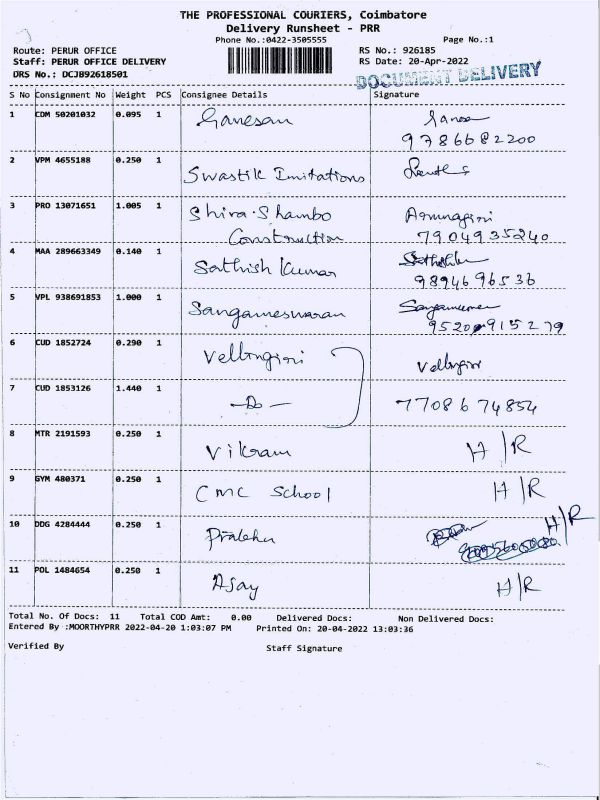 THE PROFESSIONAL COURIERS, Coimbatore
Delivery Runsheet - PRR
Phone No.:0422-3505555 Page No.:1
Route: PERUR OFFICE RS No.: 926185
Staff: PERUR OFFICE DELIVERY RS Date: 20-Apr-2022
DRS No.: DCJ892618501
DOCUMENT DELIVERY
S No Consignment No Weight PCS Consignee Details Signature
1 CDM 50201032 0.095 1 Ganesan
9786682200
2 VPM 4655188 0.250 1 Swastik Imitations
3 PRO 13071651 1.005 1 Shiva Shambo
Construction 7904935240
4 MAA 289663349 0.140 1 Sathish Kumar
9894696536
5 VPL 938691853 1.000 1 Sangameswaran
6 CUD 1852724 0.290 1 Vellingiri
7 CUD 1853126 1.440 1 -Do- 7708674854
8 MTR 2191593 0.250 1 Vikram H/R
9 GYM 480371 0.250 1 CMC School H/R
10 DDG 4284444 0.250 1 Prabhu H/R
11 POL 1484654 0.250 1 Ajay H/R
Total No. Of Docs: 11 Total COD Amt: 0.00 Delivered Docs: Non Delivered Docs:
Entered By :MOORTHYPRR 2022-04-20 1:03:07 PM Printed On: 20-04-2022 13:03:36
Verified By Staff Signature